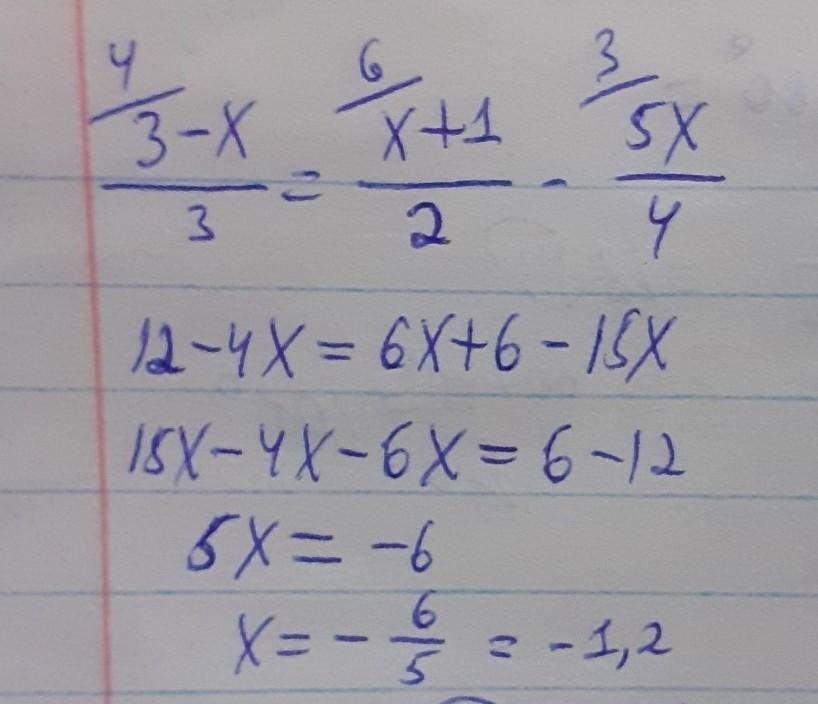 4/ 3-x / 3 = 6/ x+1 / 2 - 3/ 5x / 4
12-4x = 6x+6-15x
15x-4x-6x = 6-12
5x = -6
x = - 6/5 = -1,2